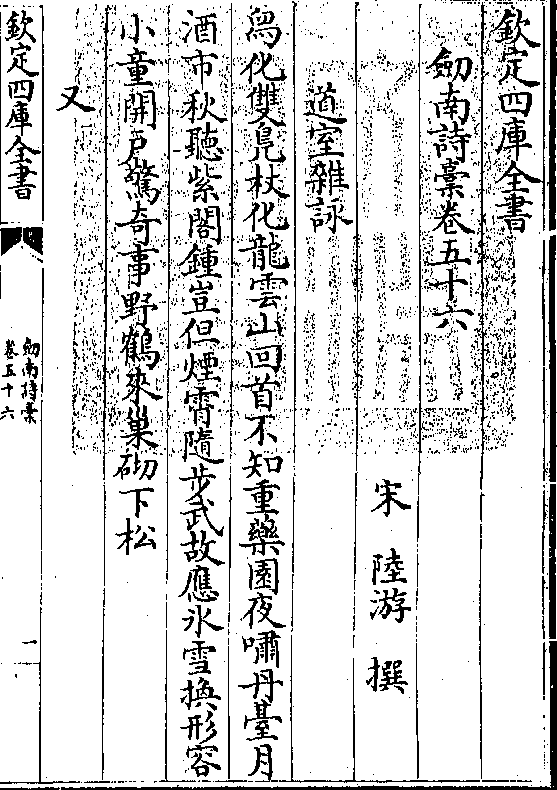 欽定四庫全書
劒南詩藁卷五十六
宋 陸游 撰
道室雜詠
舄化雙鳧杖化龍雲山回首不知重藥園夜嘯丹臺月
酒市秋聽紫閣鍾豈但煙霄隨步武故應氷雪換形容
小童開戸驚奇事野鶴來巢砌下松
又
欽定四庫全書
劒南詩藁
卷五十六
一